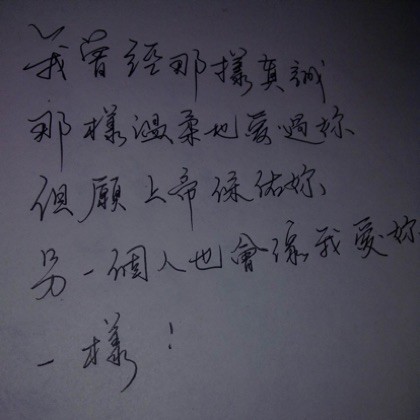 我曾經那樣真誠
那樣溫柔地愛過妳
但願上帝保佑妳
另一個人也會像我愛妳
一樣！